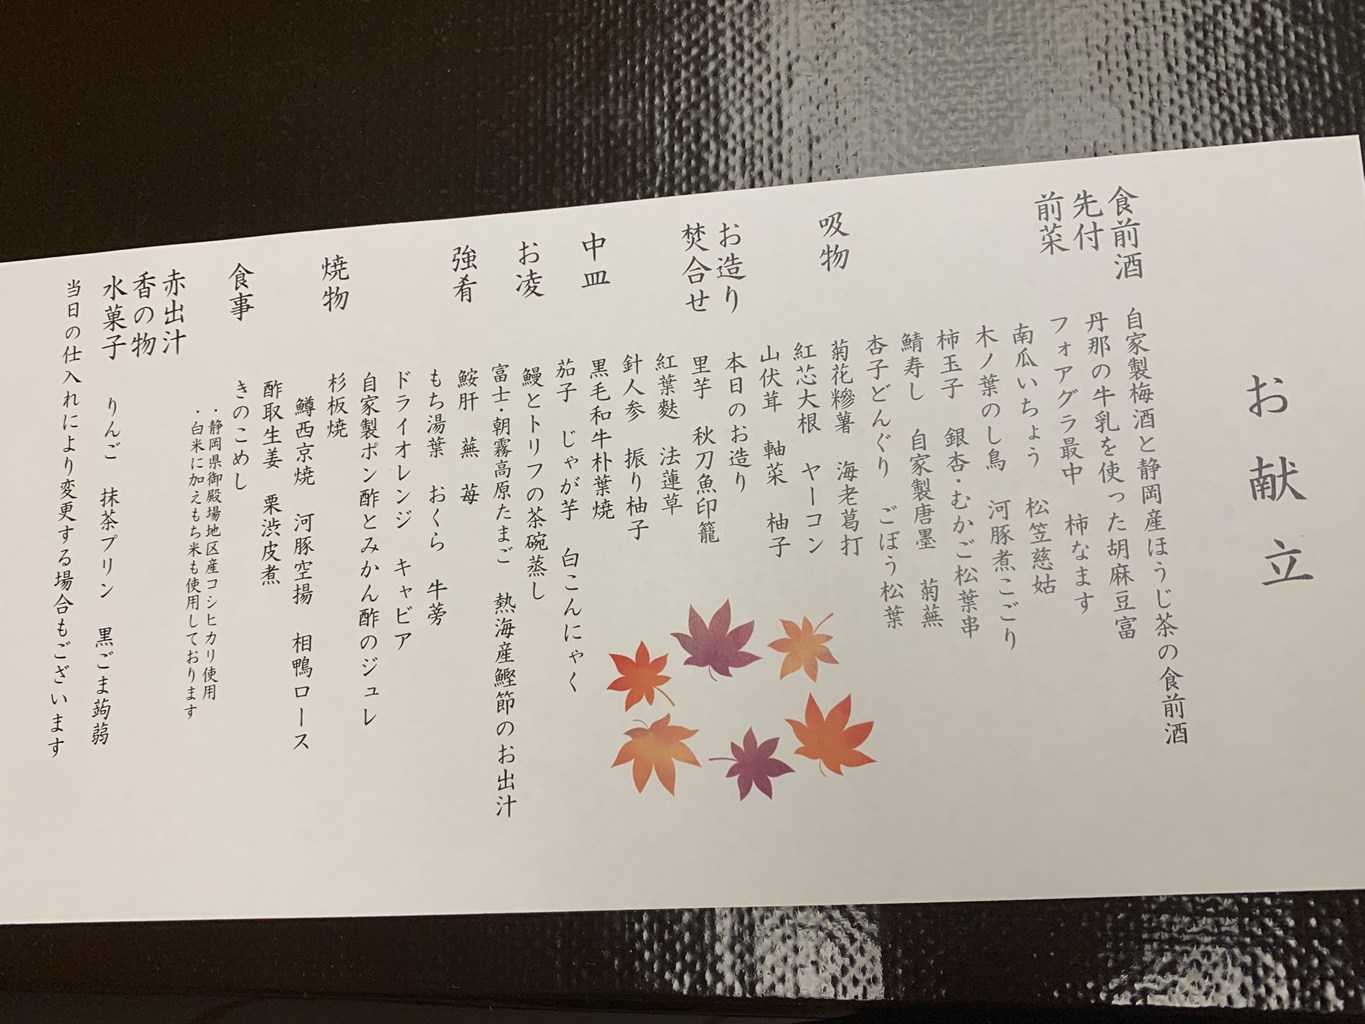 お献立
食前酒　自家製梅酒と静岡産ほうじ茶の食前酒
先付　丹那の牛乳を使った胡麻豆富
前菜　フォアグラ最中　柿なます
南瓜いちょう　松笠慈姑
木ノ葉のし鳥　河豚煮こごり
柿玉子　銀杏・むかご松葉串
鯖寿し　自家製唐墨　菊蕪
杏子どんぐり　ごぼう松葉
吸物　菊花糝薯　海老葛打
紅芯大根　ヤーコン
山伏茸　軸菜　柚子
お造り　本日のお造り
焚合せ　里芋　秋刀魚印籠
紅葉麩　法蓮草
針人参　振り柚子
中皿　黒毛和牛朴葉焼
茄子　じゃが芋　白こんにゃく
お凌　鰻とトリフの茶碗蒸し
富士・朝霧高原たまご　熱海産鰹節のお出汁
強肴　鮟肝　蕪　苺
もち湯葉　おくら　牛蒡
ドライオレンジ　キャビア
自家製ポン酢とみかん酢のジュレ
焼物　杉板焼
鱒西京焼　河豚空揚　相鴨ロース
酢取生姜　栗渋皮煮
食事　きのこめし
・静岡県御殿場地区産コシヒカリ使用
・白米に加えもち米も使用しております
赤出汁
香の物
水菓子　りんご　抹茶プリン　黒ごま蒟蒻
当日の仕入れにより変更する場合もございます